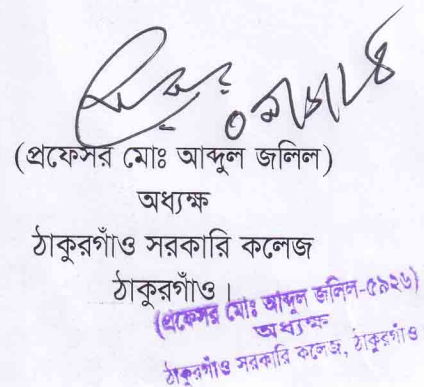 (প্রফেসর মোঃ আব্দুল জলিল)
অধ্যক্ষ
ঠাকুরগাঁও সরকারি কলেজ
ঠাকুরগাঁও।
(প্রফেসর মোঃ আব্দুল জলিল-৫৯২৬)
অধ্যক্ষ
ঠাকুরগাঁও সরকারি কলেজ, ঠাকুরগাঁও